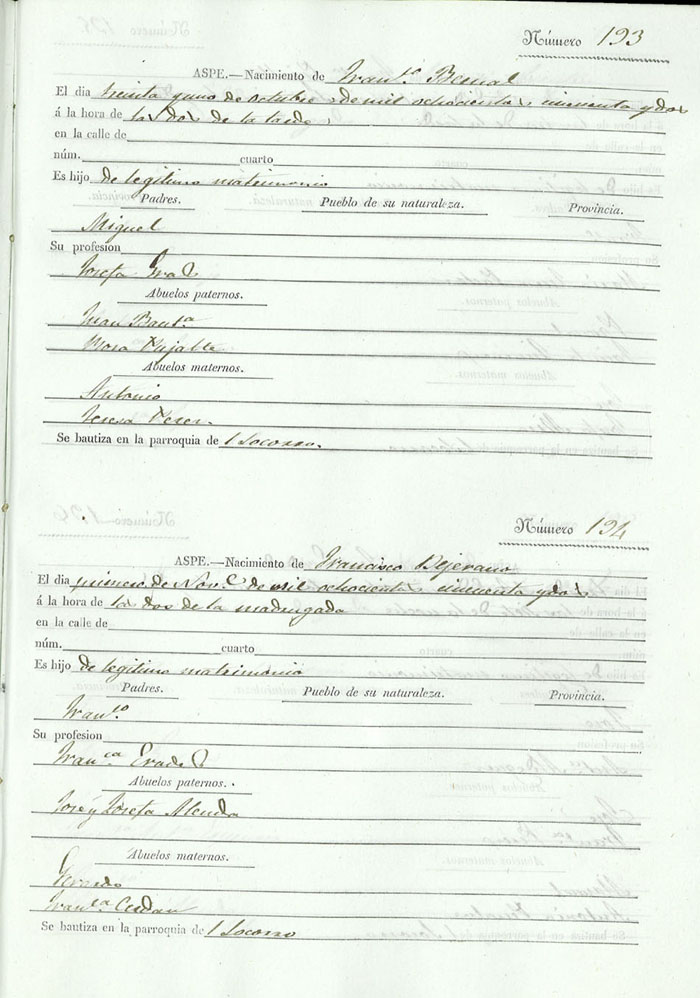 Número 193
ASPE.—Nacimiento de Fran.co Bernal
El dia treinta y uno de octubre de mil ochocientos cincuenta y dos
á la hora de las dos de la tarde
en la calle de
núm. cuarto
Es hijo de legitimo matrimonio
Padres. Pueblo de su naturaleza. Provincia.
Miguel
Su profesion
Josefa
Abuelos paternos.
Juan Baut.a
Abuelos maternos.
Antonio
Teresa
Se bautiza en la parroquia de l Socorro.
Número 194
ASPE.—Nacimiento de Francisco Bejerano
El dia primero de Nov.e de mil ochocientos cincuenta y dos
á la hora de las dos de la madrugada
en la calle de
núm. cuarto
Es hijo de legitimo matrimonio
Padres. Pueblo de su naturaleza. Provincia.
Fran.co
Su profesion
Fran.ca
Abuelos paternos.
Jose y Josefa
Abuelos maternos.
Gerardo
Fran.ca Cerdan
Se bautiza en la parroquia de l Socorro